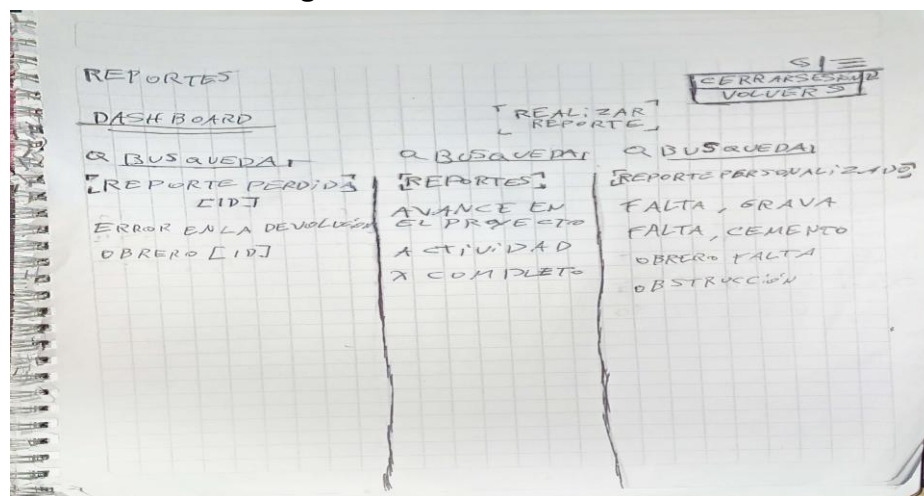 REPORTES
CERRAR SESION
VOLVER 5
DASHBOARD
REALIZAR
REPORTE
BUSQUEDA
[REPORTE PERDIDA]
[ID]
ERROR EN LA DEVOLUCIÓN
OBRERO [ID]
BUSQUEDA
[REPORTES]
AVANCE EN
EL PROYECTO
ACTIVIDAD
X COMPLETO
BUSQUEDA
[REPORTE PERSONALIZADO]
FALTA, GRAVA
FALTA, CEMENTO
OBRERO FALTA
OBSTRUCCIÓN